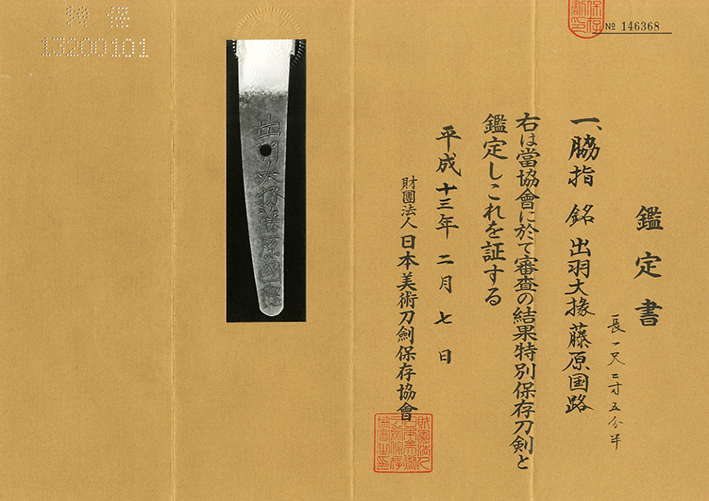 鑑定書
一、脇指 銘 出羽大掾藤原国路
長一尺二寸五分半
右は當協會に於て審査の結果特別保存刀剣と
鑑定しこれを証する
平成十三年二月七日
財團法人日本美術刀剣保存協會
№ 146368
13200101
出羽大掾藤原国路